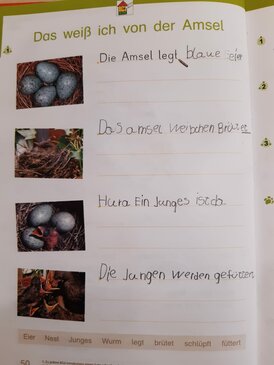 Das weiß ich von der Amsel
Die Amsel legt blaue eier
Das amsel
Hura Ein Junges ist da
Die Jungen werden gefüttert
Eier Nest Junges Wurm legt brütet schlüpft füttert
60